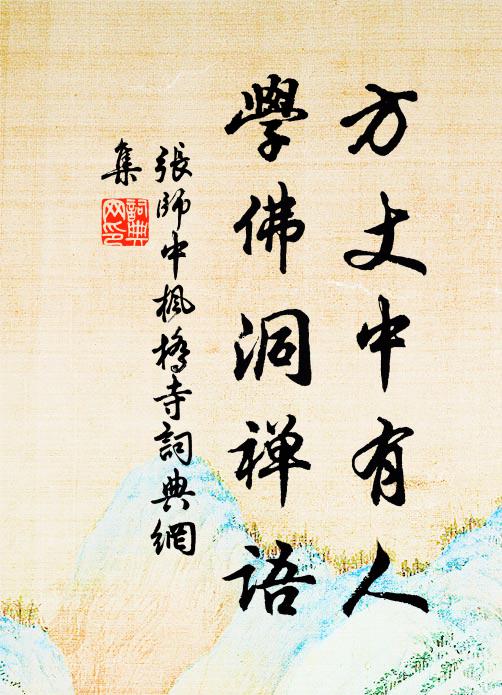 方丈中有人
學佛洞禅語
張師中楓橋寺詞典網
集
詞典
网印